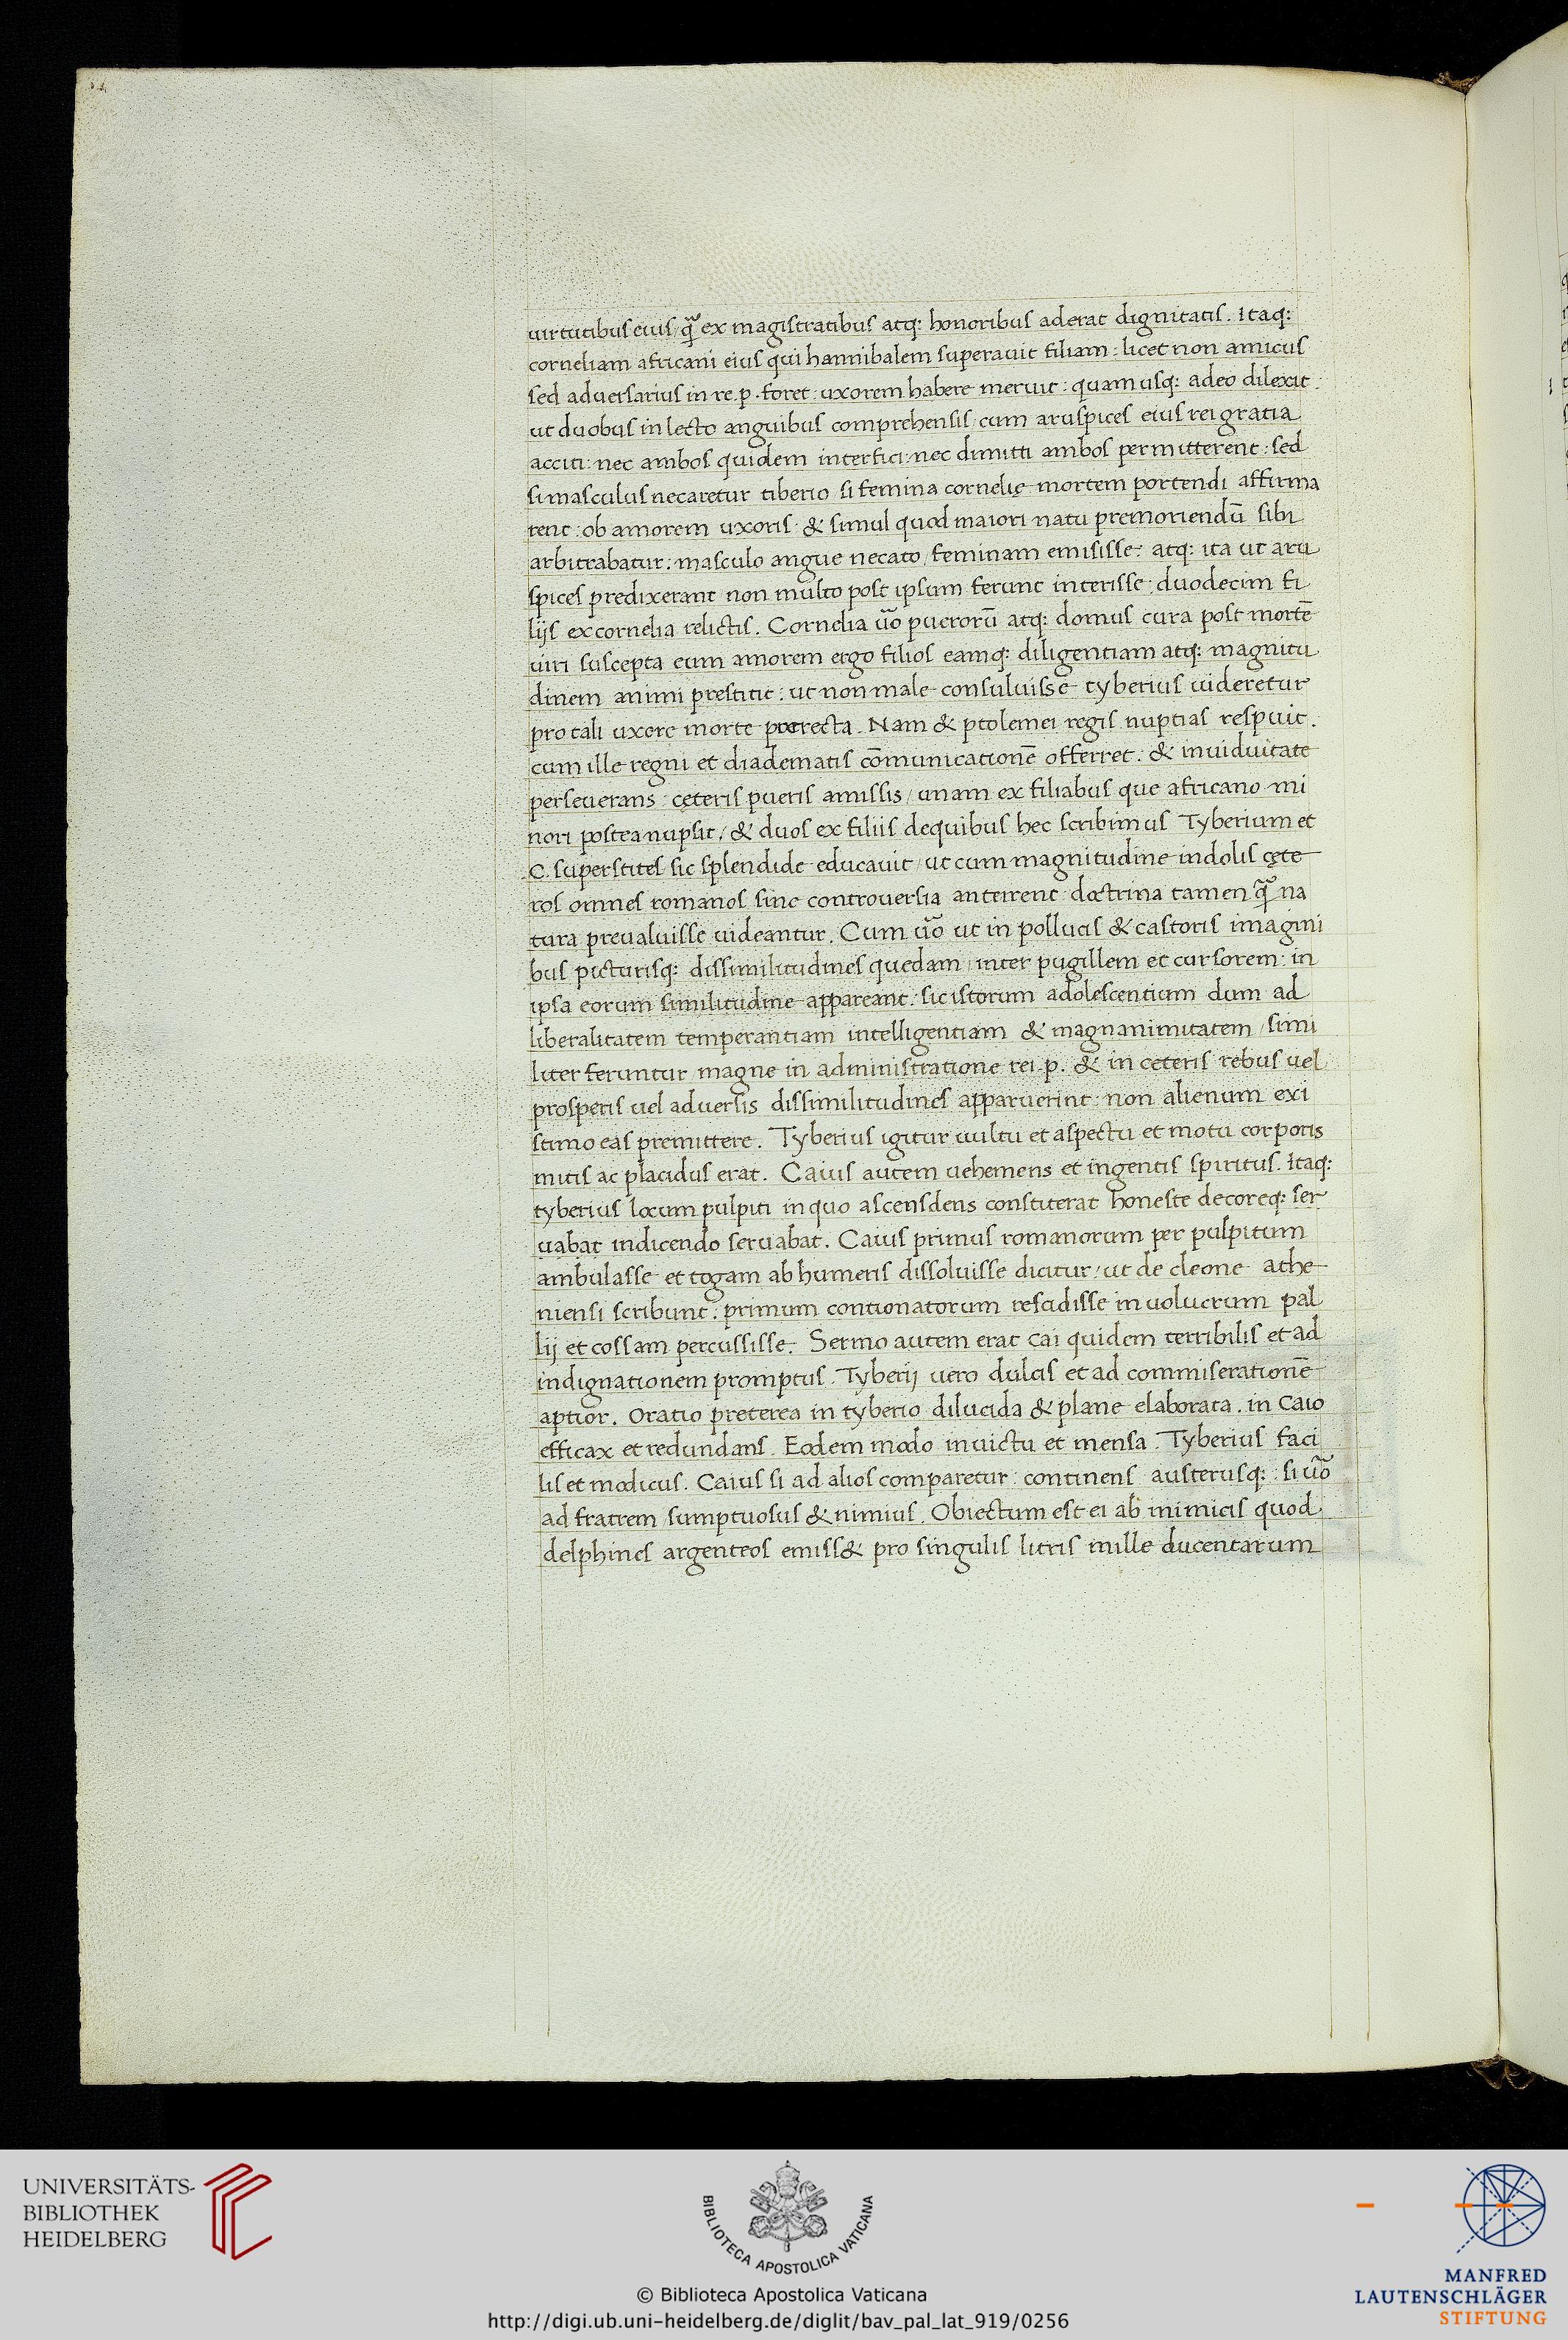 uirtutibus eius / qȝ̃ ex magistratibus atq: honoribus aderat dignitatis. Itaq:
corneliam africani eius qui hannibalem superauit filiam: licet non amicus
sed aduersarius in re. p. foret: uxorem habere meruit: quam usq: adeo dilexit.
ut duobus in lecto anguibus comprehensis / cum aruspices eius rei gratia
acciti: nec ambos quidem interfici: nec dimitti ambos permitterent: sed
si masculus necaretur tiberio si femina cornelię mortem portendi affirma
rent: ob amorem uxoris & simul quod maiori natu premoriendū sibi
arbitrabatur: masculo angue necato / feminam emisisse: atq: ita ut aru
spices predixerant non multo post ipsum ferunt interisse: duodecim fi
lijs ex cornelia relictis. Cornelia uo᷉ puerorū atq: domus cura post mortē
uiri suscepta eum amorem ergo filios eamq: diligentiam atq: magnitu
dinem animi prestitit: ut non male consuluisse tyberius uideretur
pro tali uxore morte porrecta. Nam & ptolemei regis nuptias respuit.
cum ille regni et diadematis cōmunicationē offerret: & in uiduitate
perseuerans: cęteris pueris amissis / unam ex filiabus que africano mi
nori postea nupsit / & duos ex filiis de quibus hec scribimus Tyberium et
C. superstites sic splendide educauit / ut cum magnitudine indolis cęte
ros omnes romanos sine controuersia anteirent doctrina tamen qȝ̃ na
tura preualuisse uideantur. Cum uo᷉ ut in pollucis & castoris imagini
bus picturisq: dissimilitudines quedam / inter pugillem et cursorem: in
ipsa eorum similitudine appareant: sic istorum adolescentium dum ad
liberalitatem temperantiam intelligentiam & magnanimitatem / simi
liter feruntur magne in administratione rei. p. & in ceteris rebus uel
prosperis uel aduersis dissimilitudines apparuerint: non alienum exi
stimo eas premittere. Tyberius igitur uultu et aspectu et motu corporis
mitis ac placidus erat. Caius autem uehemens et ingentis spiritus. Itaq:
tyberius locum pulpiti in quo ascensdens constiterat honeste decoreq: ser
uabat in dicendo seruabat. Caius primus romanorum per pulpitum
ambulasse et togam ab humeris dissoluisse dicitur / ut de cleone athe
niensi scribunt: primum contionatorum rescidisse inuolucrum pal
lij et cossam percussisse. Sermo autem erat Cai quidem terribilis et ad
indignationem promptus. Tyberij uero dulcis et ad commiserationē
aptior. Oratio preterea in tyberio dilucida & plane elaborata. in Caio
efficax et redundans. Eodem modo in uictu et mensa. Tyberius faci
lis et modicus. Caius si ad alios comparetur: continens austerusq: : si uo᷉
ad fratrem sumptuosus & nimius. Obiectum est ei ab inimicis quod
delphines argenteos emiss& pro singulis litris mille ducentarum
UNIVERSITÄTS-
BIBLIOTHEK
HEIDELBERG
BIBLIOTECA APOSTOLICA VATICANA
© Biblioteca Apostolica Vaticana
http://digi.ub.uni-heidelberg.de/diglit/bav_pal_lat_919/0256
MANFRED
LAUTENSCHLÄGER
STIFTUNG